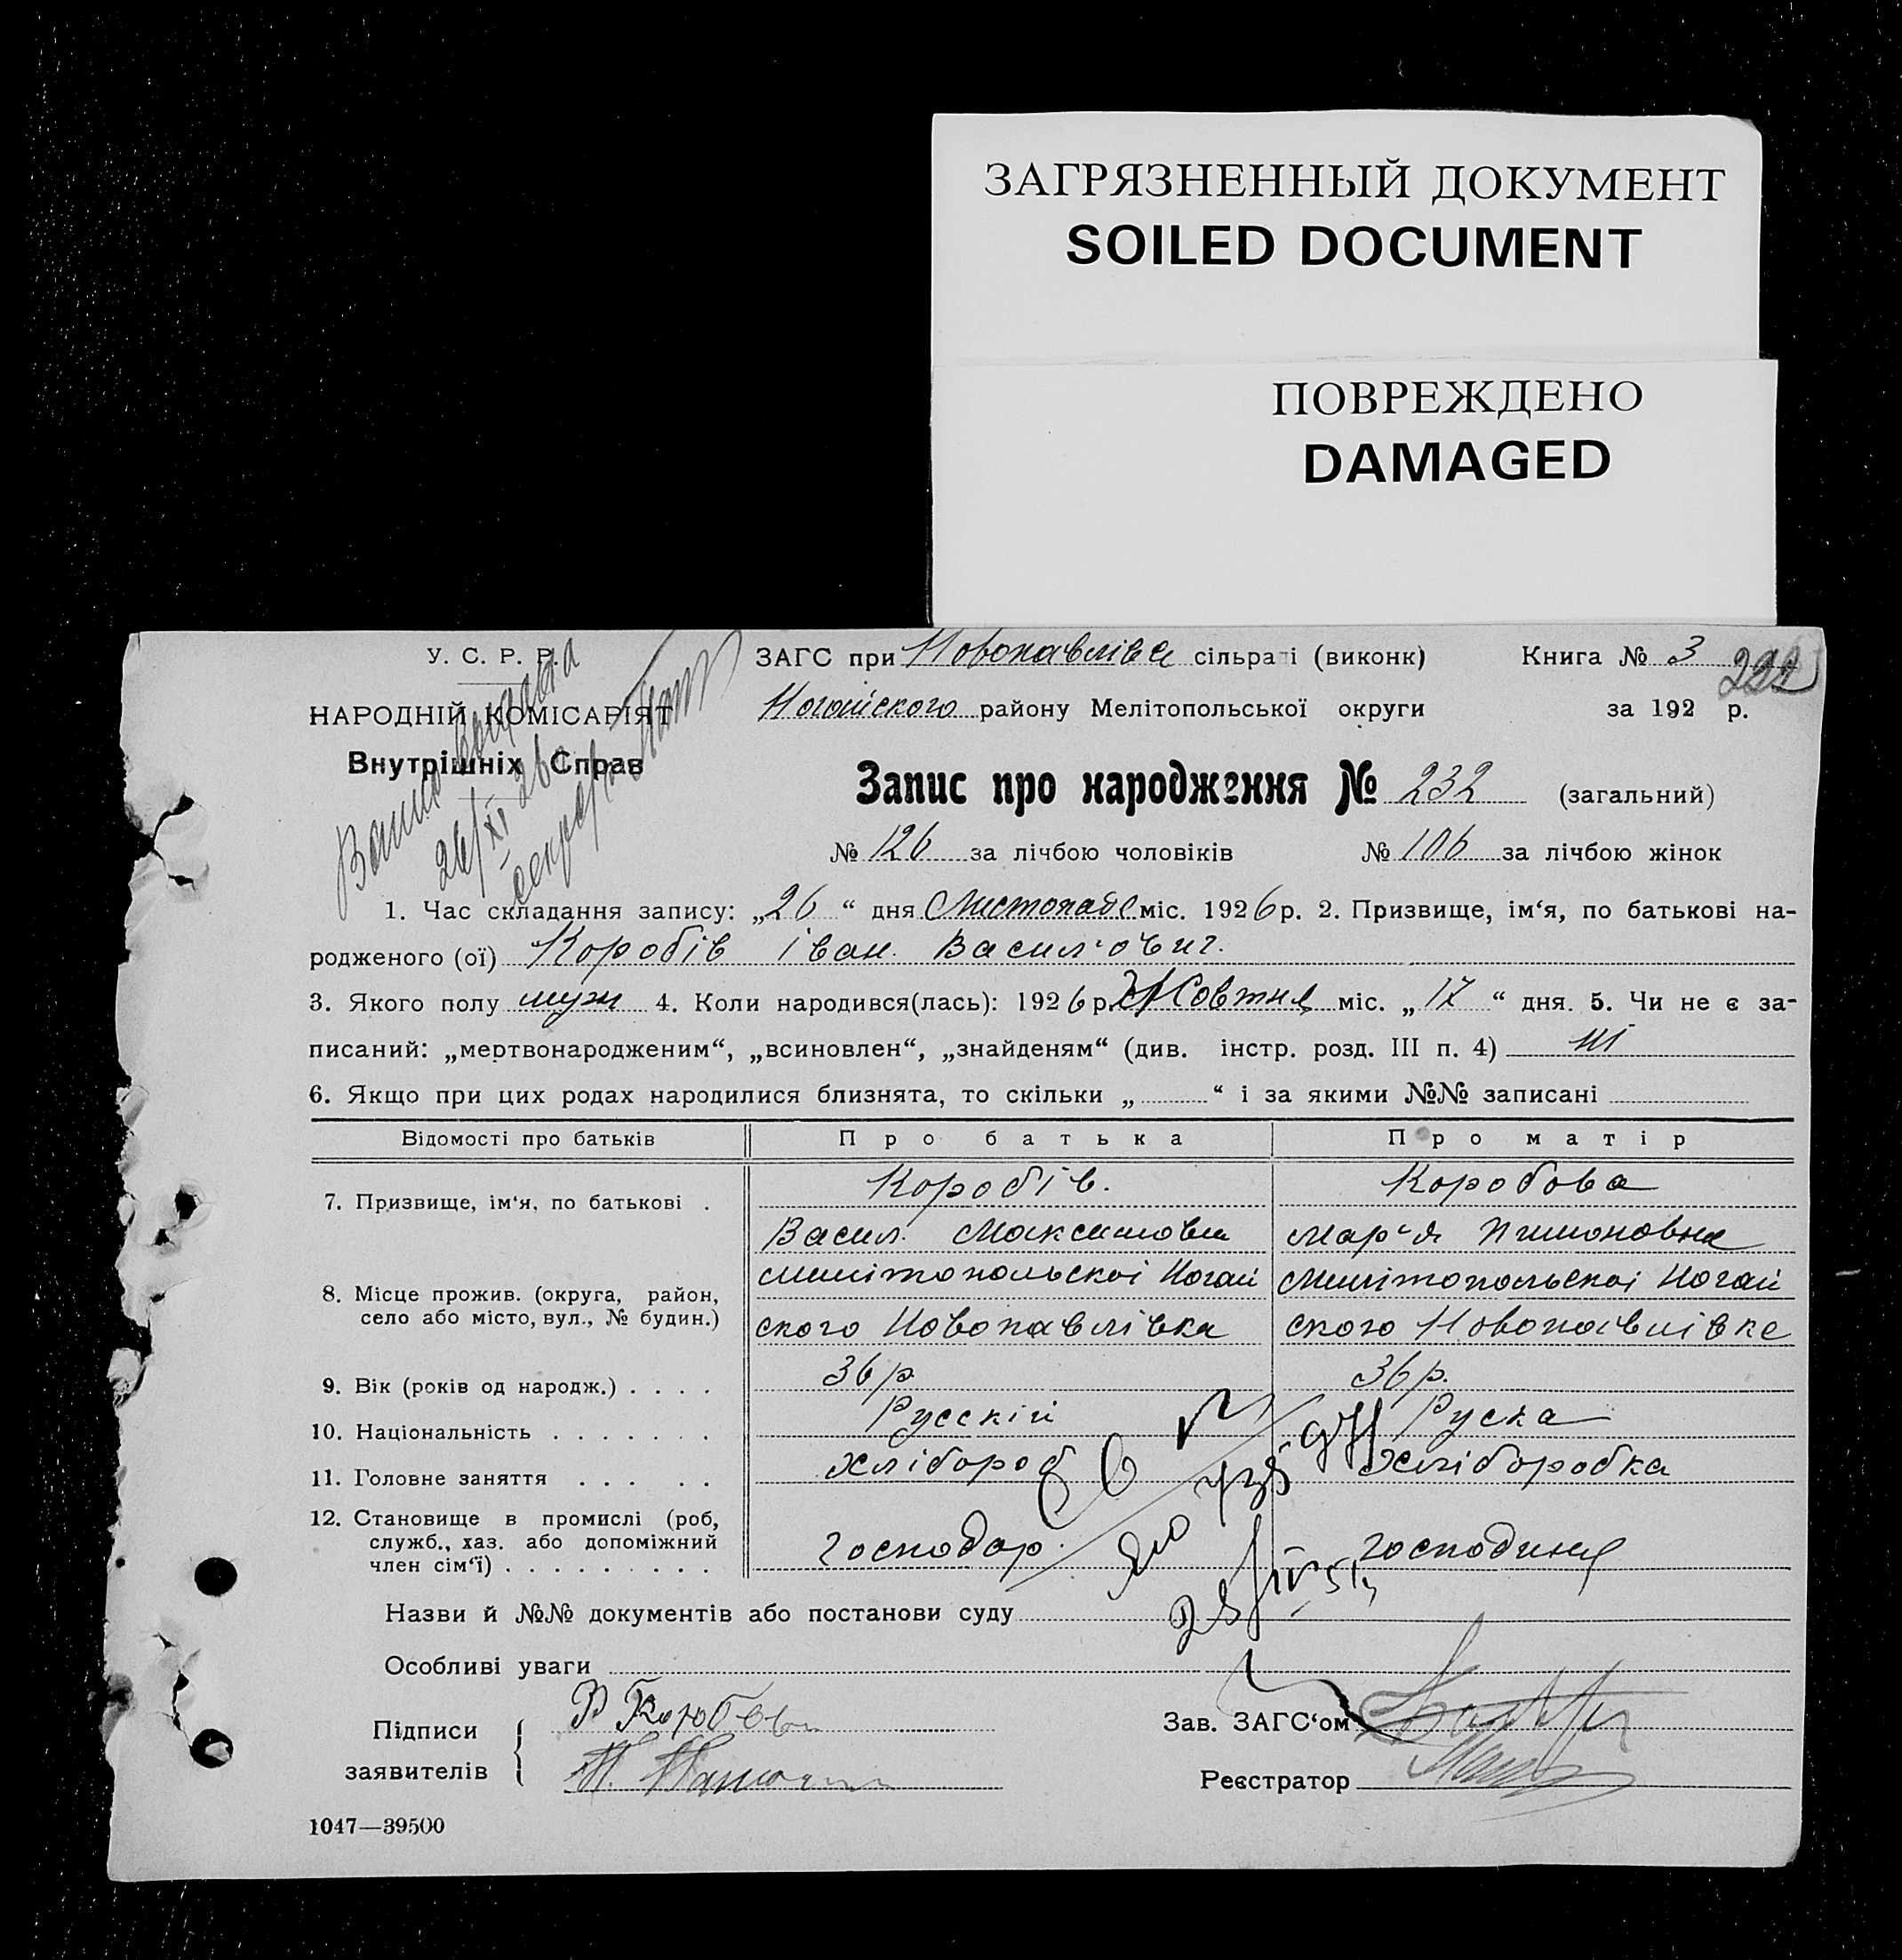 ЗАГРЯЗНЕННЫЙ ДОКУМЕНТ
SOILED DOCUMENT
ПОВРЕЖДЕНО
DAMAGED
У. С. Р. Р.
НАРОДНІЙ КОМІСАРІЯТ
Внутрішніх Справ
26/XI 26
секретарь
ЗАГС при Новопавлівск сільраді (виконк) Книга № 3 222
Ногайского району Мелітопольської округи за 192 р.
Запис про народження № 232 (загальний)
№ 126 за лічбою чоловіків № 106 за лічбою жінок
1. Час складання запису: „26“ дня Листопада міс. 1926 р. 2. Призвище, ім‘я, по батькові на-
родженого (ої) Коробів Іван Васил‘ович.
3. Якого полу муж 4. Коли народився(лась): 1926 р. Жовтня міс. „17“ дня. 5. Чи не є за-
писаний: „мертвонародженим“, „всиновлен“, „знайденям“ (див. інстр. розд. III п. 4) ні
6. Якщо при цих родах народилися близнята, то скільки „ “ і за якими №№ записані
Відомості про батьків Про батька Про матір
7. Призвище, ім‘я, по батькові . Коробів. Коробова
Васил. Максимови Мар‘я Пимоновна
8. Місце прожив. (округа, район, село або місто, вул., № будин.) Милітопольскоі Ногай Милітопольскоі Ногай
ского Новопавлівка ского Новопавлівке
9. Вік (років од народж.) . . . . 36 р. 36 р.
10. Національність . . . . . . . Русскій Руска
11. Головне заняття . . . . . хлібороб хліборобка
12. Становище в промислі (роб, служб., хаз. або допоміжний член сім‘ї) . . . . . . . . . господар. господиня
Назви й №№ документів або постанови суду
Особливі уваги
Підписи заявителів
В Коробов
Зав. ЗАГС‘ом
Реєстратор
1047—39500